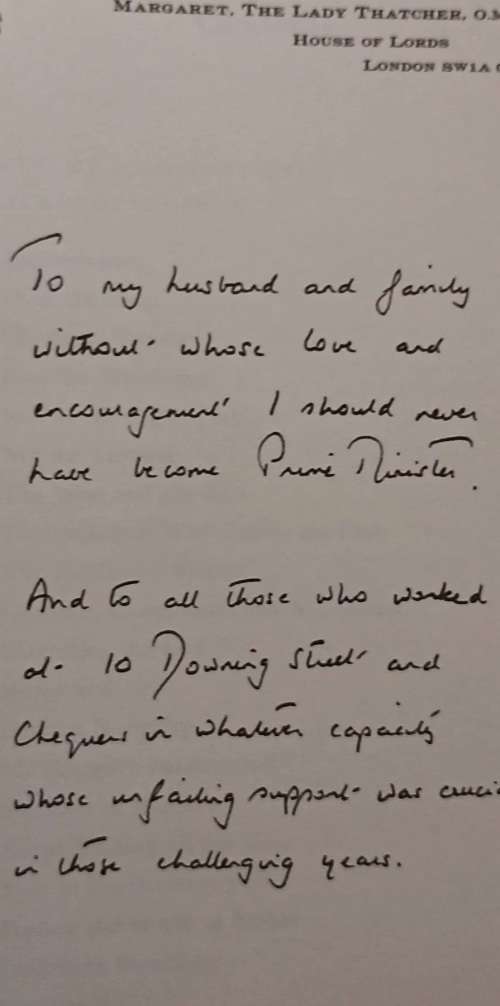 MARGARET, THE LADY THATCHER, O.M
HOUSE OF LORDS
LONDON SW1A
To my husband and family
without whose love and
encouragement I should never
have become Prime Minister.
And to all those who worked
at 10 Downing Street and
Chequers in whatever capacity
whose unfailing support was crucia
in those challenging years.